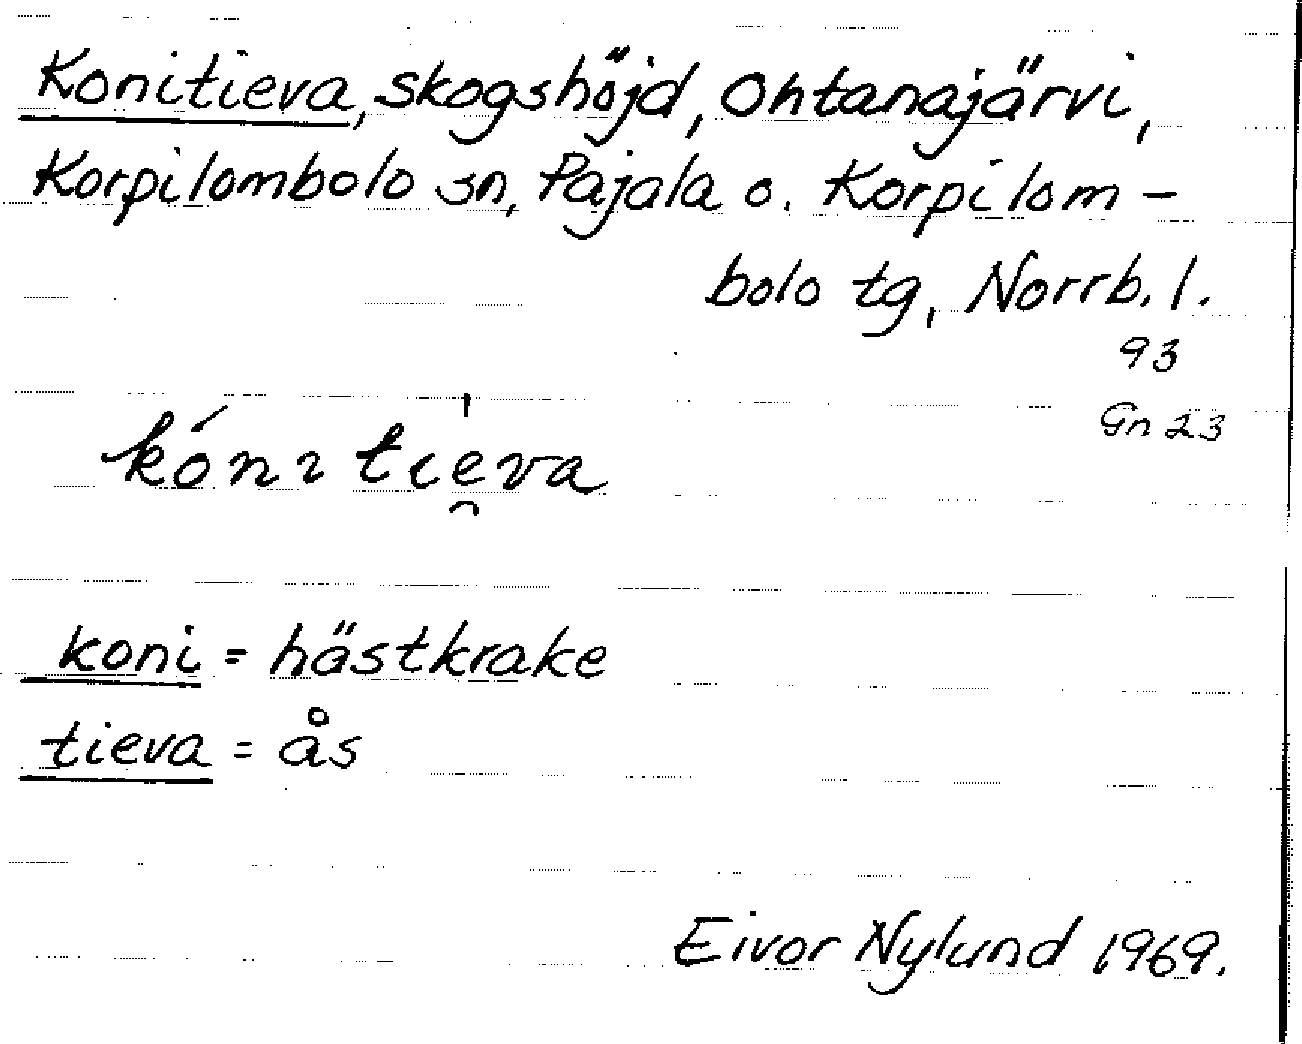 Konitieva, skogshöjd, Ohtanajärvi,
Korpilombolo sn, Pajala o. Korpilom-
bolo tg, Norrb. l.
93
Gn 23
kón ı tıe̯va
koni = hästkrake
tieva = ås
Eivor Nylund 1969.